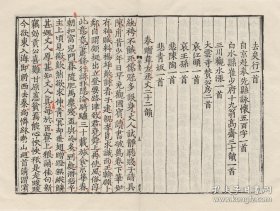 去矣行一首
自京赴奉先縣詠懷五百字一首
白水縣崔少府十九翁高齋三十韻一首
三川觀水漲一首
大雲寺贊公房二首
哀王孫一首
悲陳陶一首
悲青坂一首
奉贈韋左丞丈二十二韻
紈袴不餓死儒冠多誤身丈人試靜聽賤子請具
陳甫昔少年日早充觀國賓讀書破萬卷下筆如
有神賦料楊雄敵詩看子建親李邕求識面王翰願卜
鄰自謂頗挺出立登要路津致君堯舜上再使風俗淳
此意竟蕭條行歌非隱淪騎驢三十載旅食京華春
朝扣富兒門暮隨肥馬塵殘杯與冷炙到處潛悲辛
主上頃見徵欻然欲求伸青冥却垂翅蹭蹬無縱鱗
甚愧丈人厚甚知丈人真每於百寮上猥誦佳句新
竊效貢公喜難甘原憲貧焉能心怏怏秖是走踆踆
今欲東入海即將西去秦尚憐終南山回首